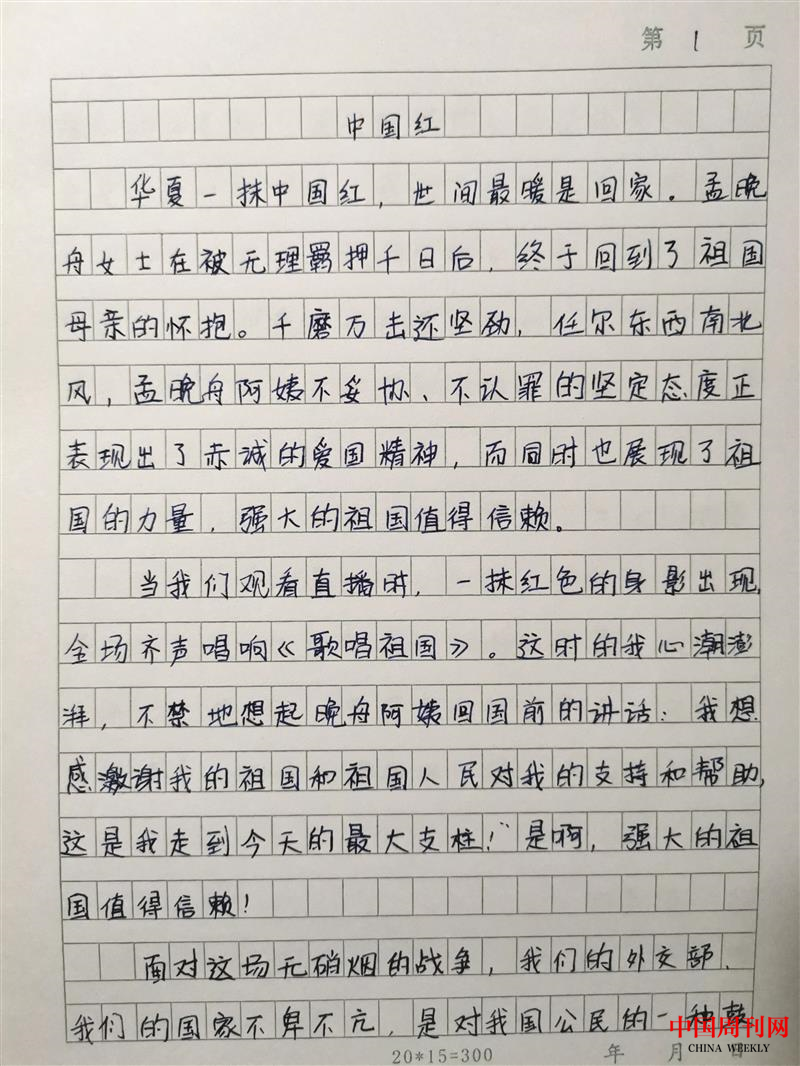 第 1 页
中国红
华夏一抹中国红，世间最暖是回家。孟晚
舟女士在被无理羁押千日后，终于回到了祖国
母亲的怀抱。千磨万击还坚劲，任尔东西南北
风，孟晚舟阿姨不妥协、不认罪的坚定态度正
表现出了赤诚的爱国精神，而同时也展现了祖
国的力量，强大的祖国值得信赖。
当我们观看直播时，一抹红色的身影出现，
全场齐声唱响《歌唱祖国》。这时的我心潮澎
湃，不禁地想起晚舟阿姨回国前的讲话：我想
感激谢我的祖国和祖国人民对我的支持和帮助，
这是我走到今天的最大支柱！”是啊，强大的祖
国值得信赖！
面对这场无硝烟的战争，我们的外交部、
我们的国家不卑不亢，是对我国公民的一种
中国周刊网
CHINA WEEKLY
20*15=300
年 月 日